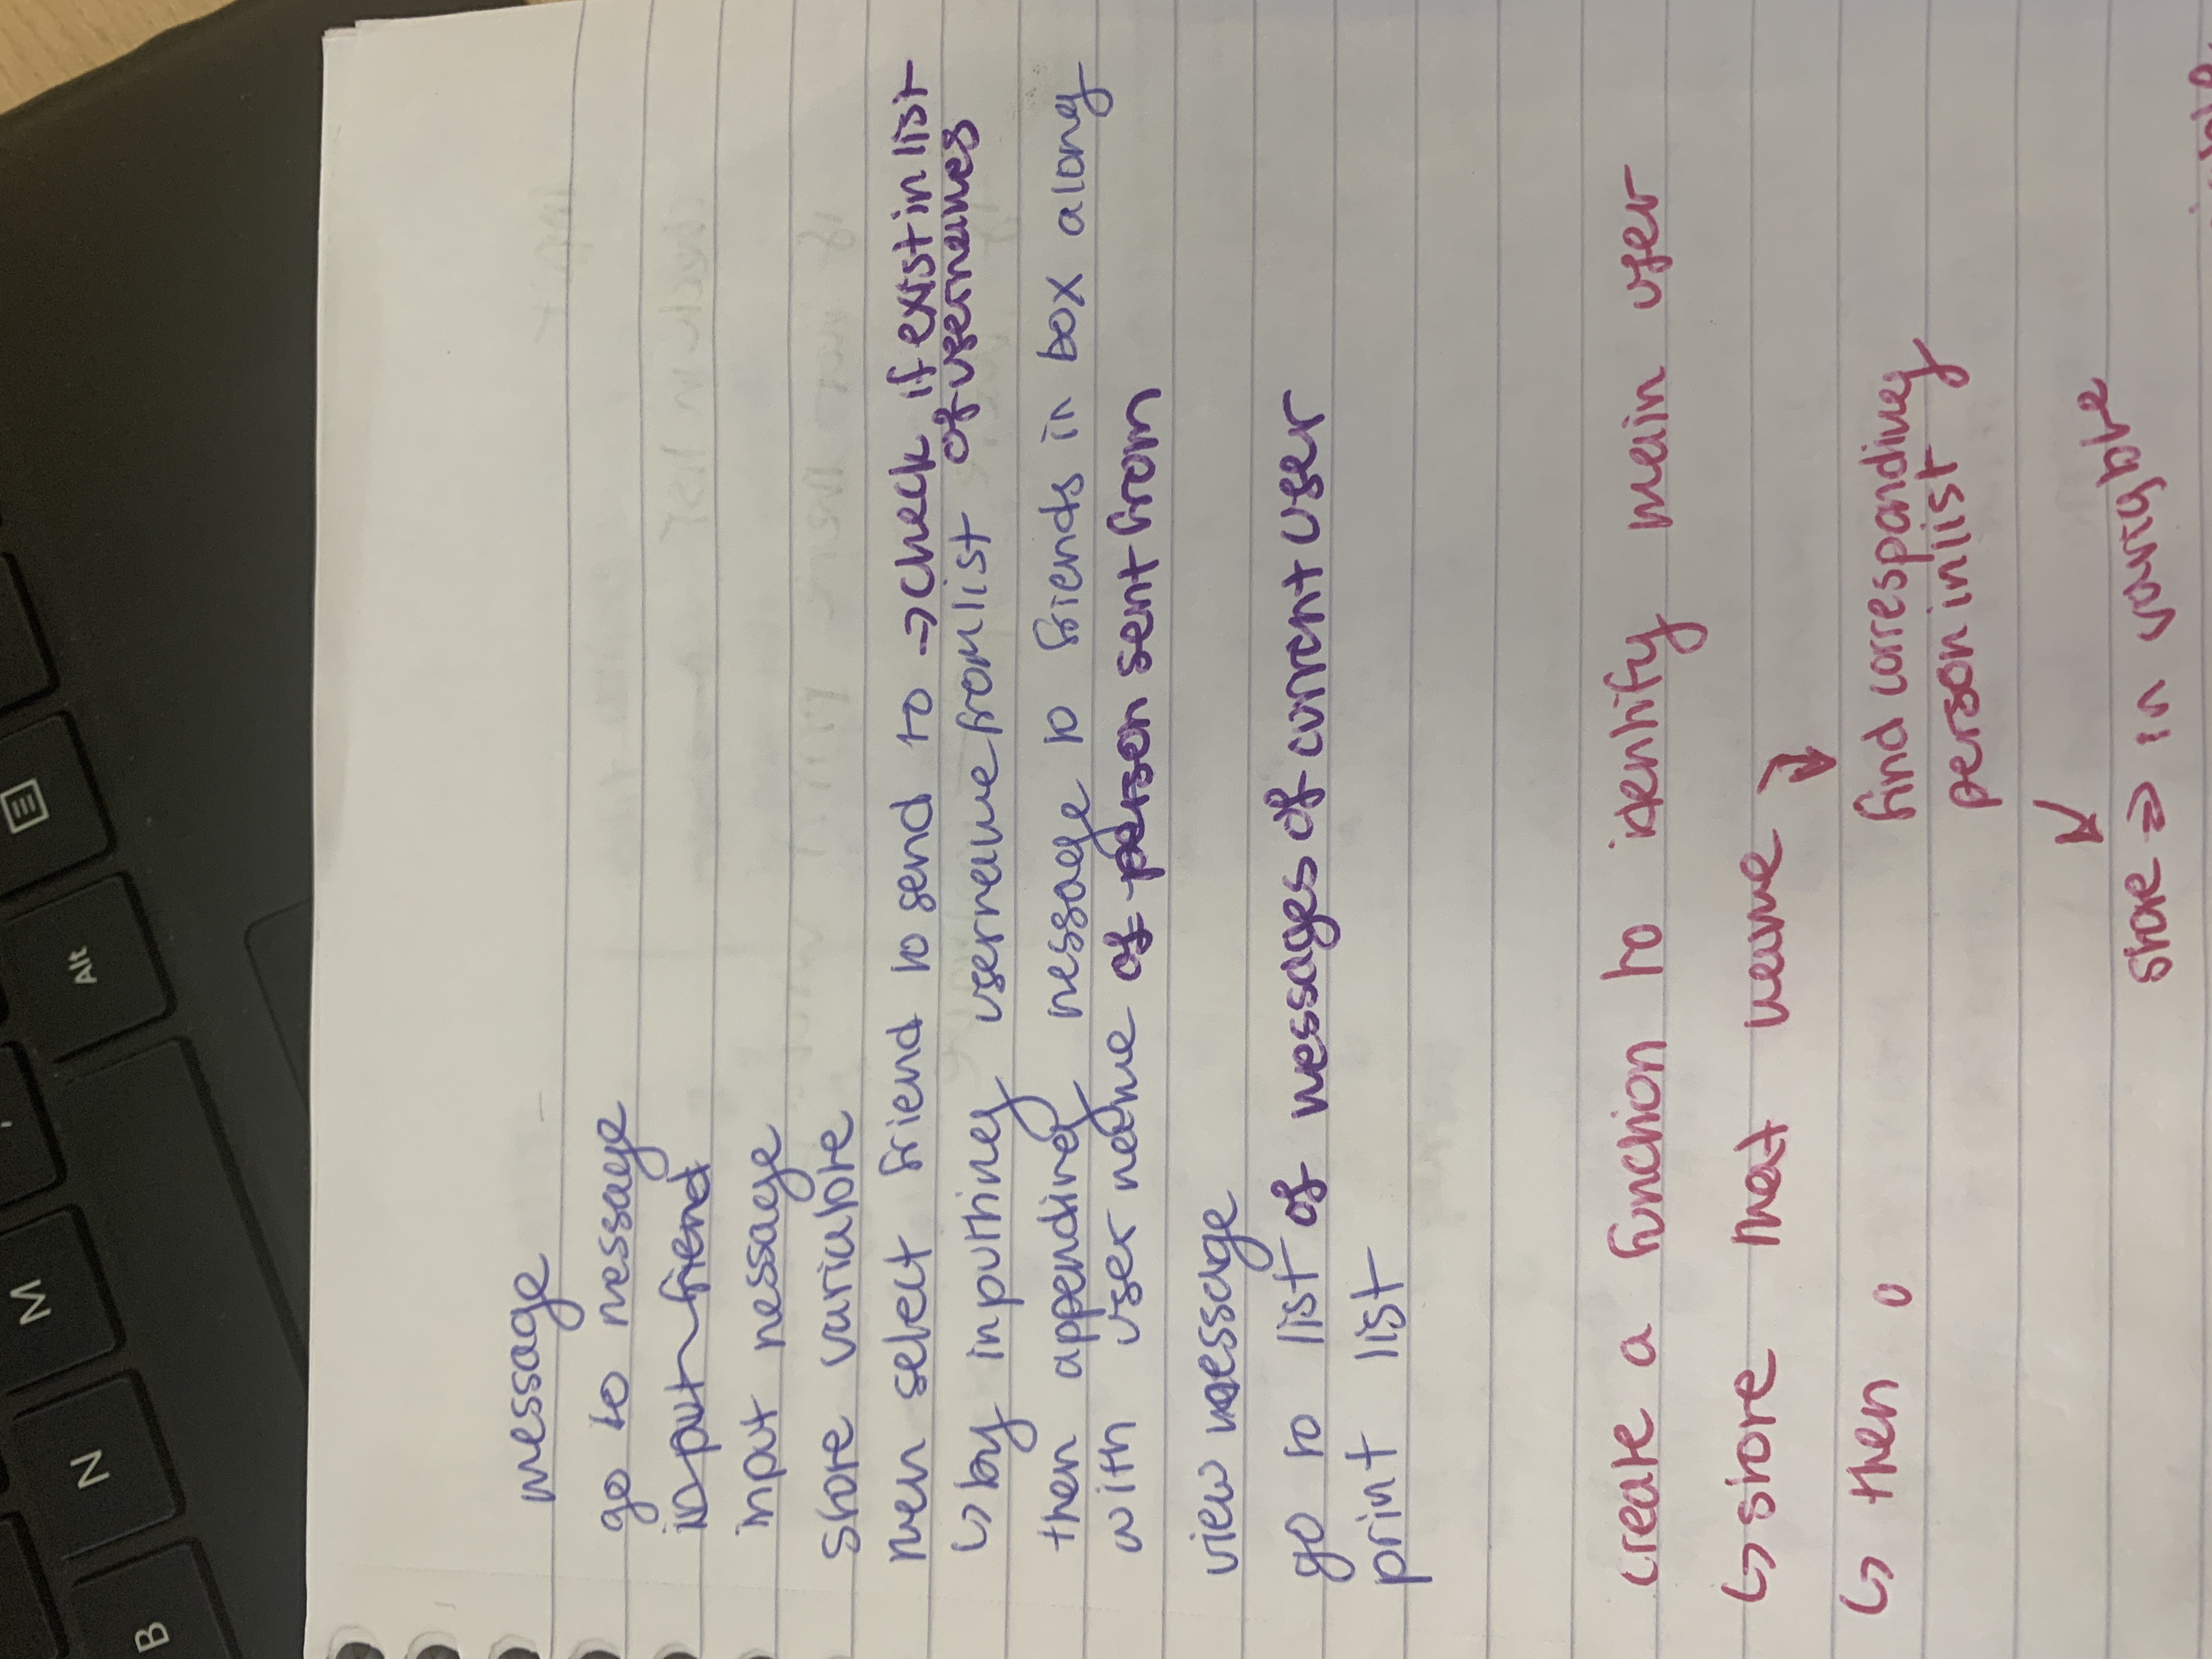 B N M Alt
message
go to message
input friend
input message
store variable
then select friend to send to → check if exist in list
↳ by inputting username from list of usernames
then appending message to friends in box along
with username of person sent from
view message
go to list of messages of current user
print list
create a function to identify main user
↳ store that name
↳ then
find corresponding
person in list
store ⇒ in variable